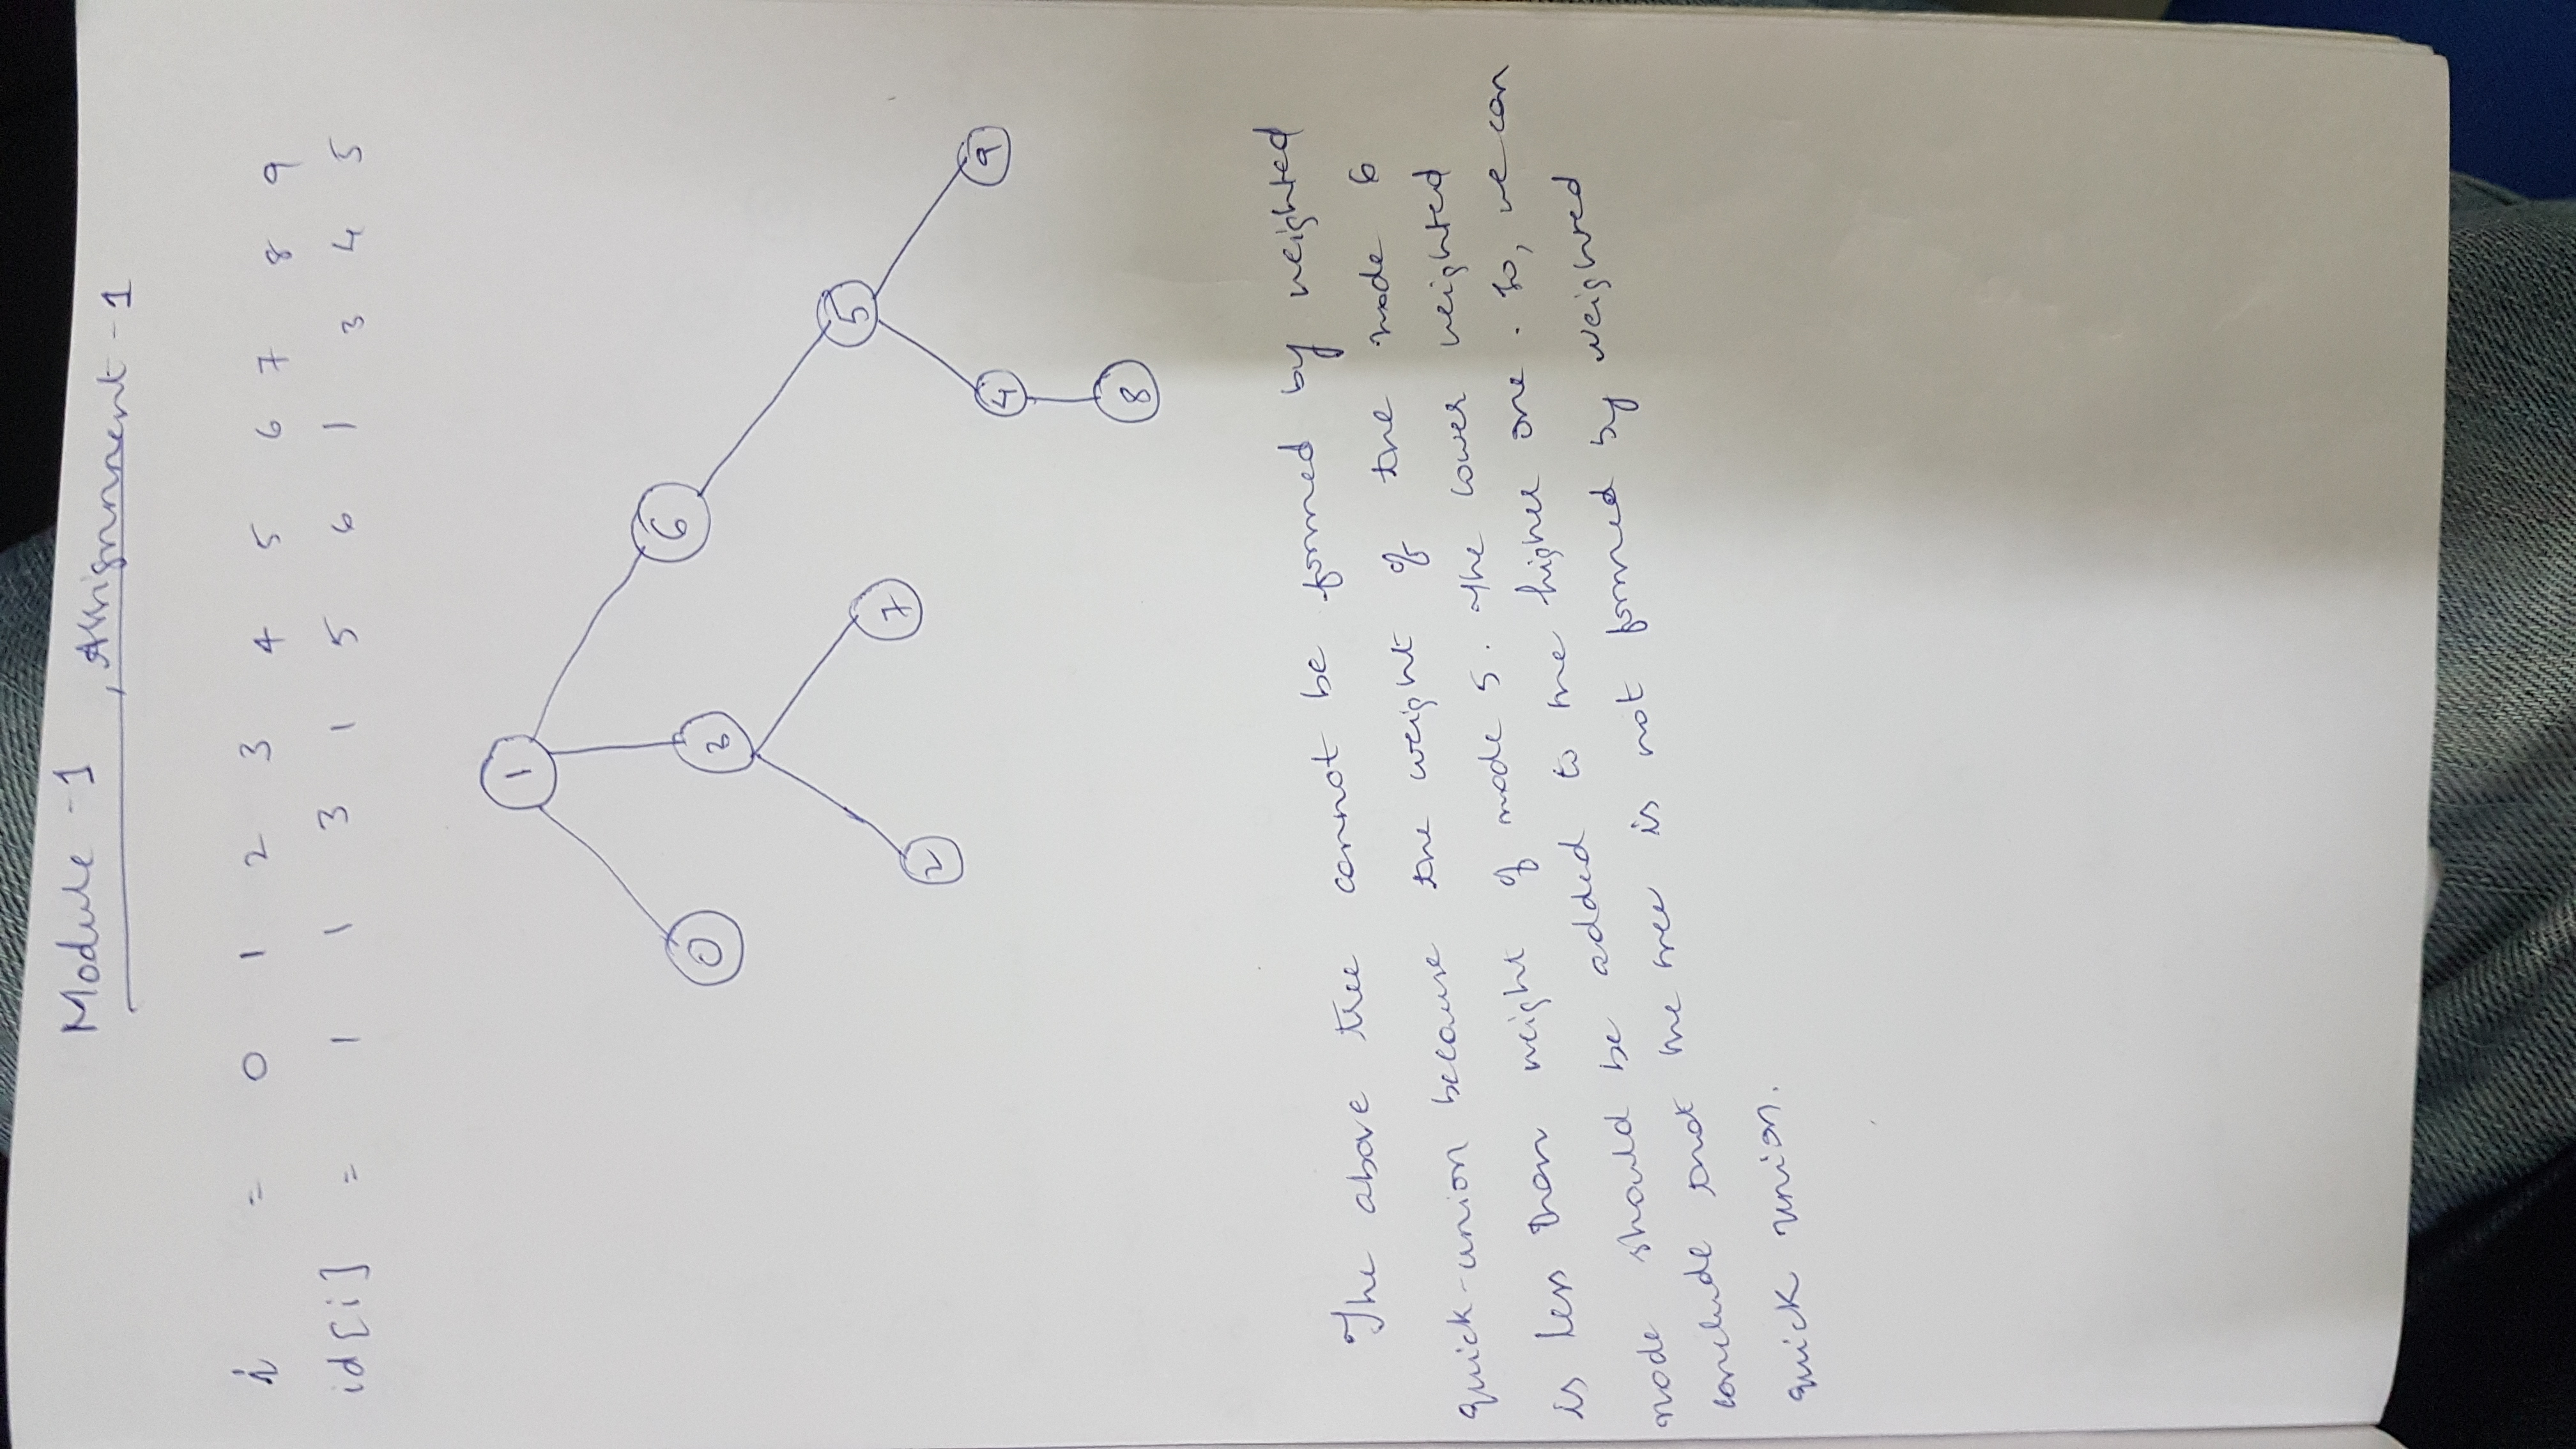 Module - 1, Assignment - 1
i = 0 1 2 3 4 5 6 7 8 9
id[i] = 1 1 3 1 5 6 1 3 4 5
1
0 3 6
2 7 5
4 9
8
The above tree cannot be formed by weighted
quick-union because the weight of the node 6
is less than weight of node 5. The lower weighted
node should be added to the higher one. So, we can
conclude that the tree is not formed by weighted
quick union.